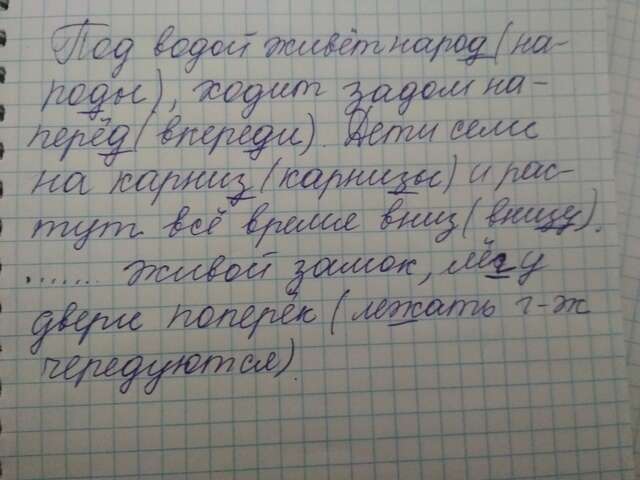 Под водой живёт народ (на-
роды), ходит задом на-
перёд (впереди). Дети сели
на карниз (карнизы) и рас-
тут всё время вниз (внизу).
....... живой замок, лёг у
двери поперёк (лежать г-ж
чередуются).